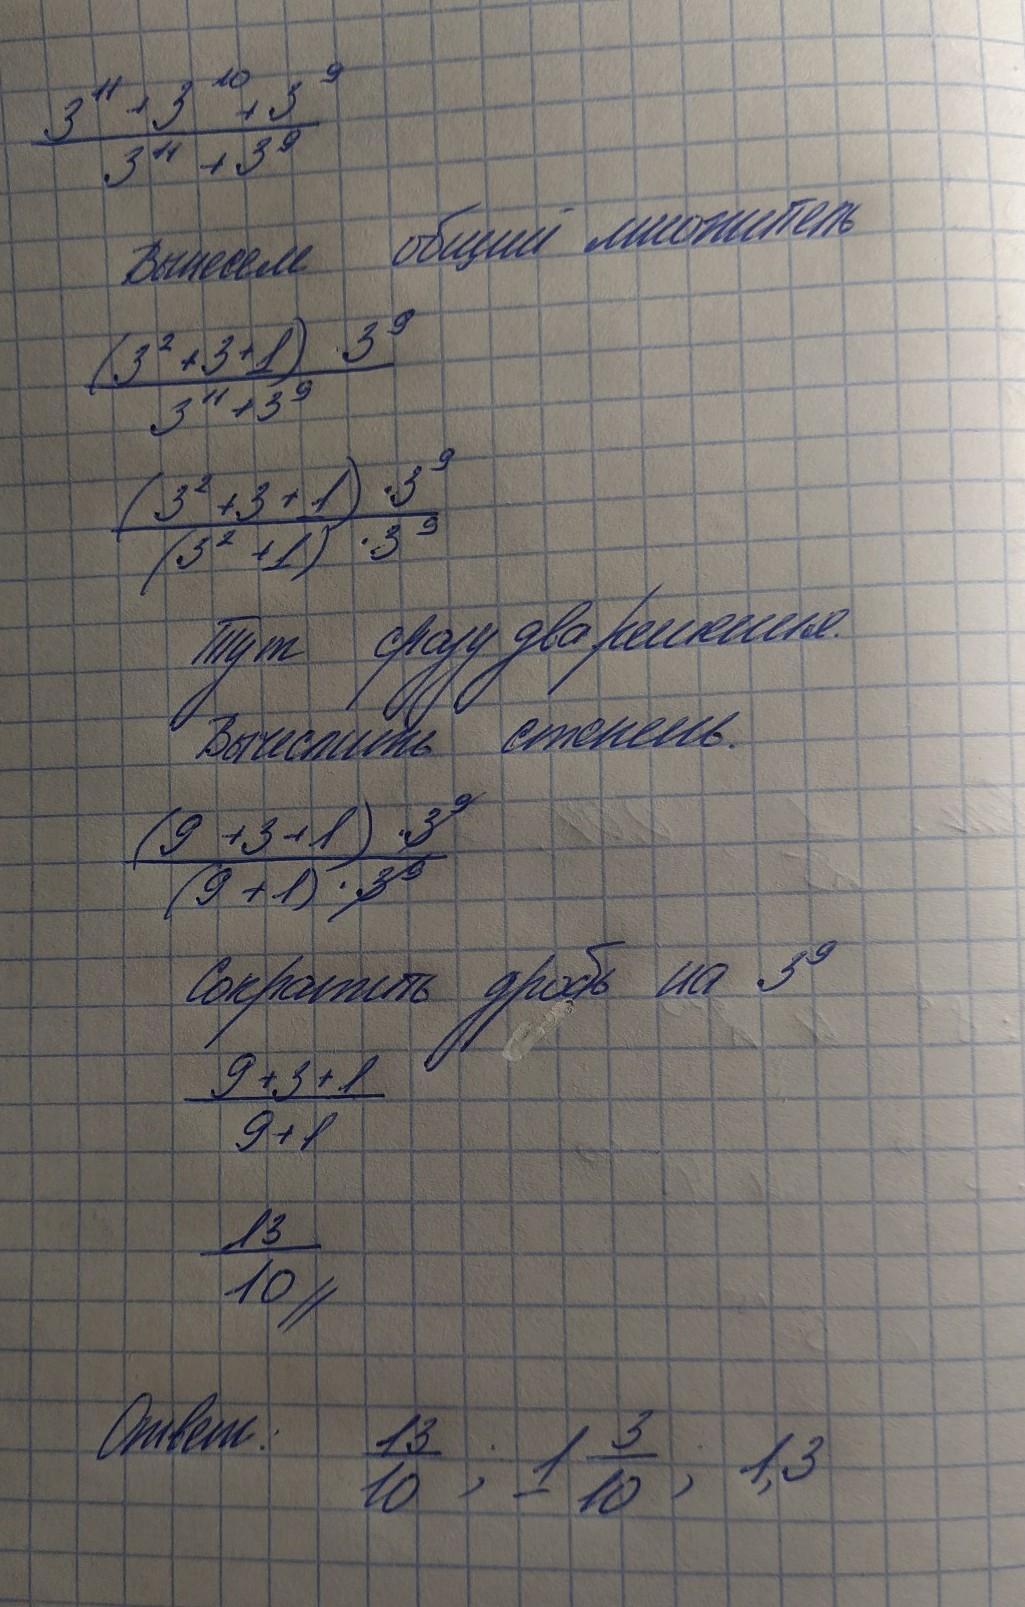 3¹¹ + 3¹⁰ + 3⁹
3¹¹ + 3⁹
Вынесем общий множитель
(3² + 3 + 1) · 3⁹
3¹¹ + 3⁹
(3² + 3 + 1) · 3⁹
(3² + 1) · 3⁹
Тут сразу два решения.
Вычеслить степень.
(9 + 3 + 1) · 3⁹
(9 + 1) · 3⁹
Сократить дробь на 3⁹
9 + 3 + 1
9 + 1
13
10 //
Ответ: 13/10 ; 1 3/10 ; 1,3